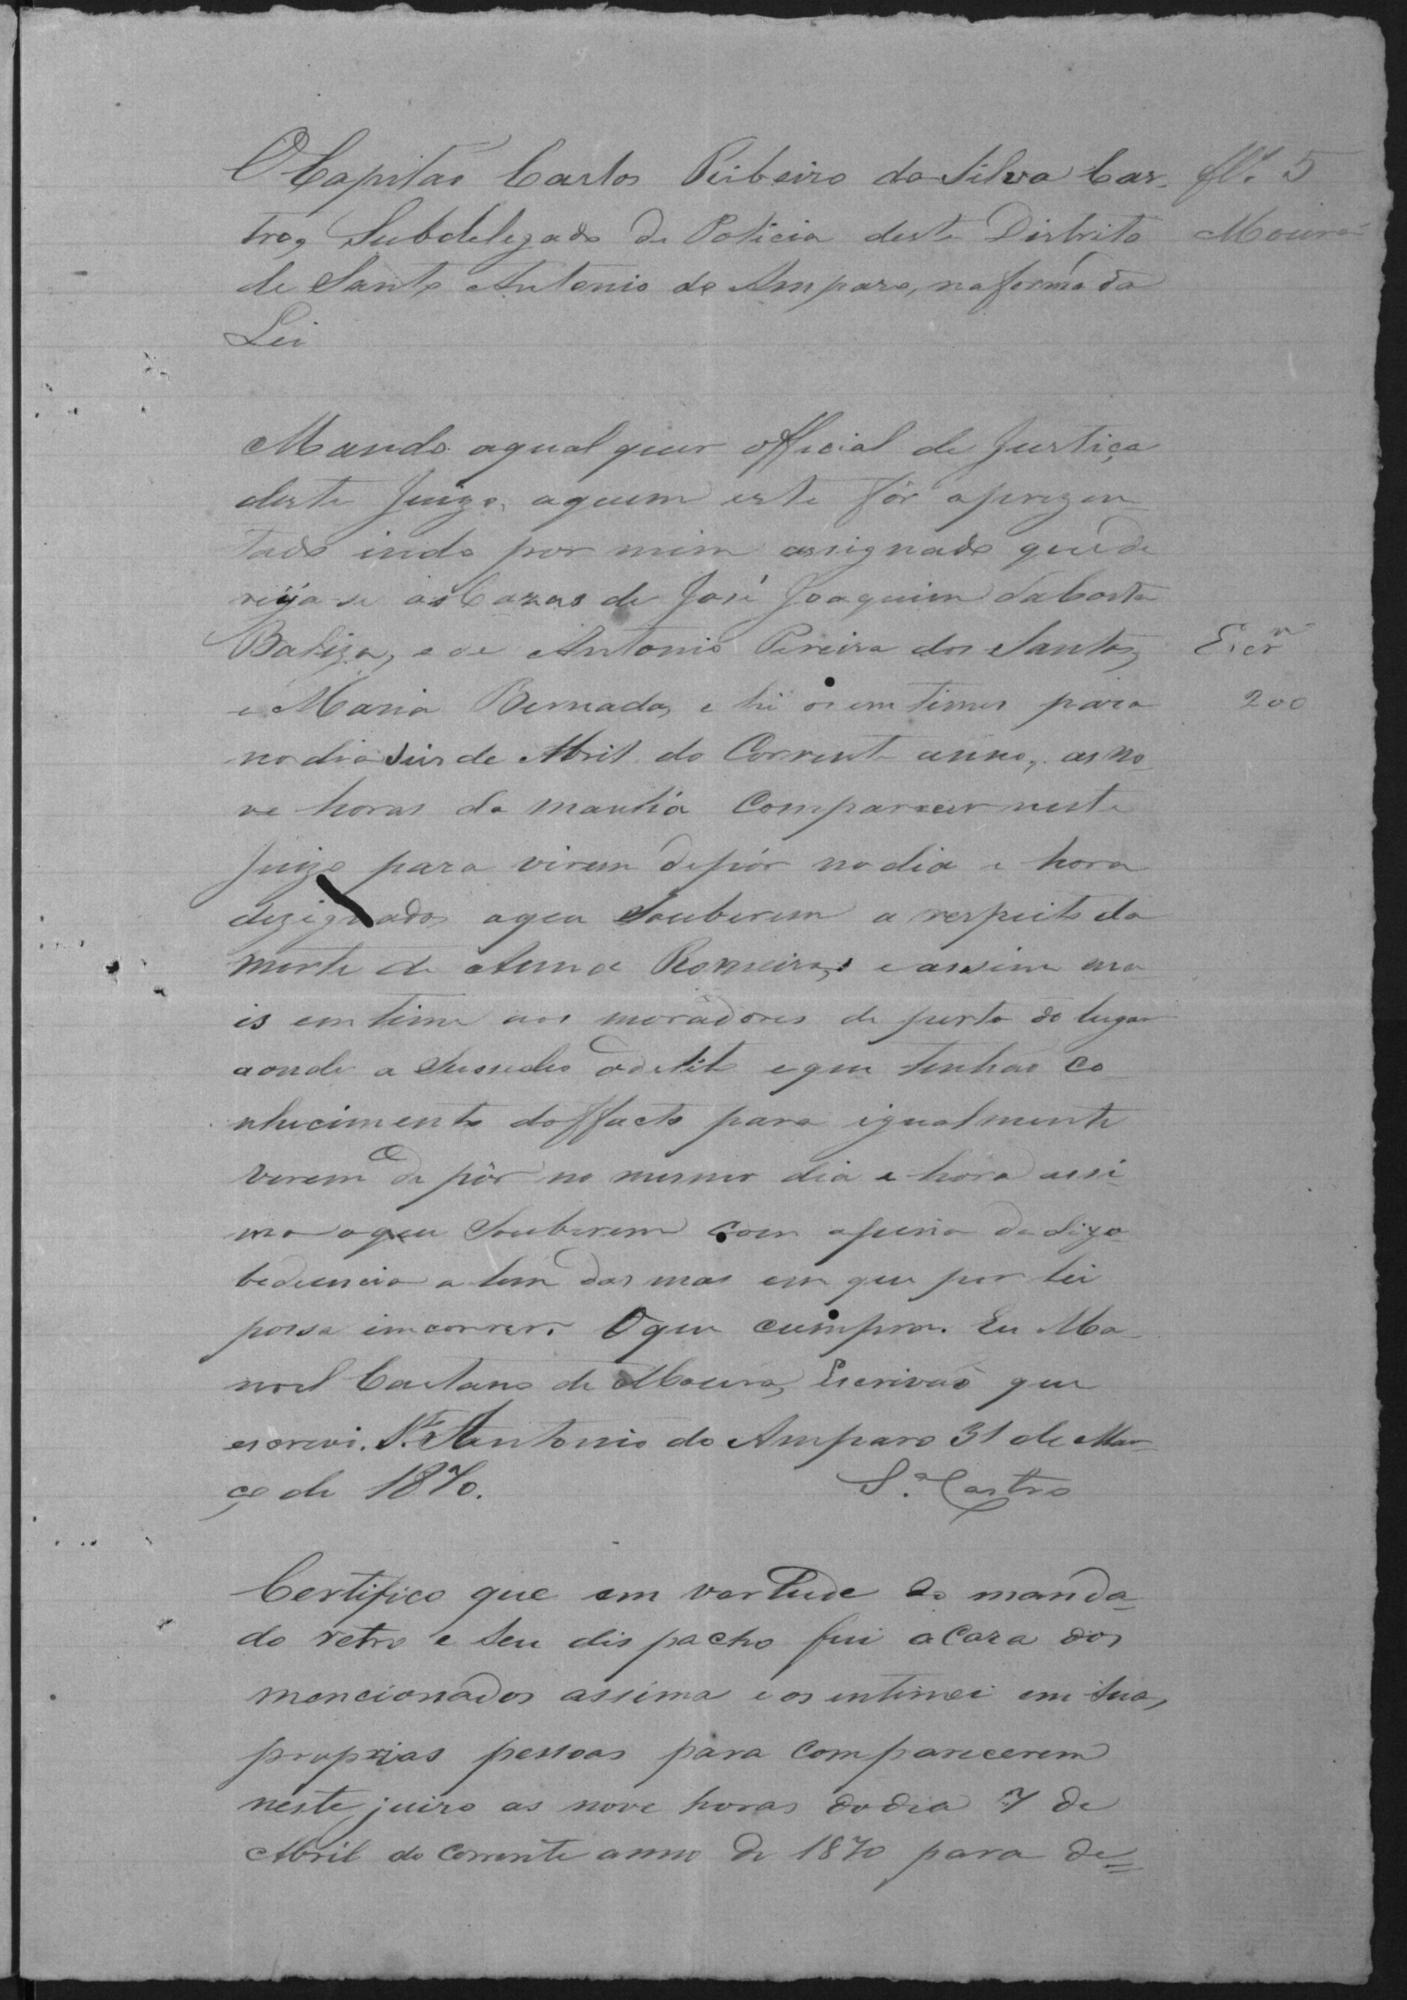 O Capitão Carlos Ribeiro da Silva Cas- fl. 5
tro, Subdelegado de Policia deste Distrito Moura
de Santo Antonio do Amparo, na forma da
Lei
Mando aqual quer official de Justiça
deste Juizo, aquem este fôr aprezen
tado indo por mim assignado que de
reija se as Cazas de José Joaquim da Costa
Baliza, e de Antonio Pereira dos Santos, Escr.m
e Maria Bernada, e hi os emtimes para 200
no dia seis de Abril do Corrente anno, as no
ve horas da manhã Comparecer neste
Juizo para virem depôr no dia e hora
dezignados aque Souberem a respeito da
morte de Anna Romeira, e assim ma
is emtime aos moradores de perto do lugar
aonde a Sussedeo odelito eque tenhão co
nhecimento do ffacto para igualmente
verem de pôr no mesmo dia e hora assi
ma oque Souberem com apena de dizo
bediencia a lem das mas em que por lei
possa imcorrer. Oque cumpra. Eu Ma
noel Caetano de Moura, Escrivão que
escrevi. S.to Antonio do Amparo 31 de Mar
ço de 1870. S.a Castro
Certifico que em vertude do manda
do retro e Seu dispacho fui acaza dos
mencionados assima e os intimei em Suas,
proprias pessoas para comparecerem
neste juizo as nove horas dodia 7 de
Abril do corrente anno de 1870 para de=